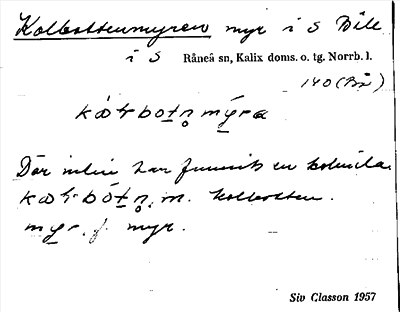 Kolbottenmyren myr i S Böle
i S Råneå sn, Kalix doms. o. tg. Norrb. l.
140 (Bä)
Där invid har funnits en kolmila.
m. kolbotten.
myr. f. myr.
Siv Classon 1957